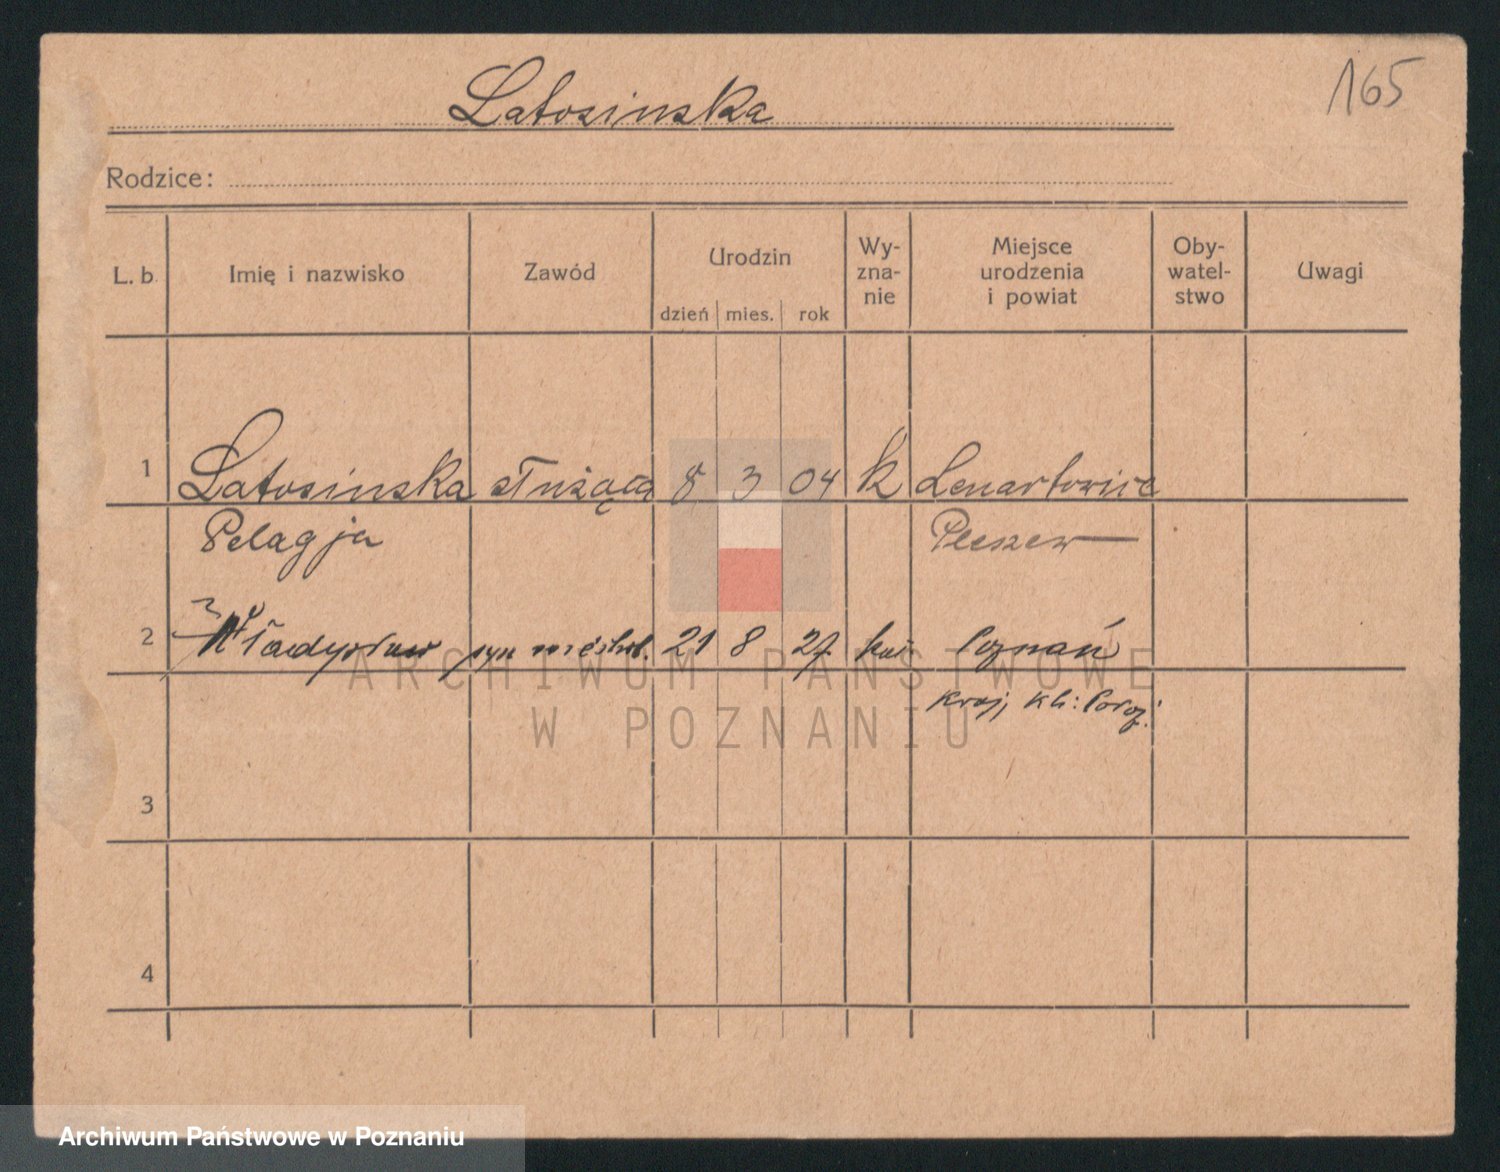 165
Latosinska
Rodzice:
L. b. Imię i nazwisko Zawód Urodzin dzień mies. rok Wy-zna-nie Miejsce urodzenia i powiat Oby-watel-stwo Uwagi
1 Latosinska służąca 8 3 04 k Lenartowice
Pelagja Pleszew
2 Władysław syn nieślub. 21 8 27 kat Poznań
kraj, kl:
3
4
ARCHIWUM PAŃSTWOWE
W POZNANIU
Archiwum Państwowe w Poznaniu